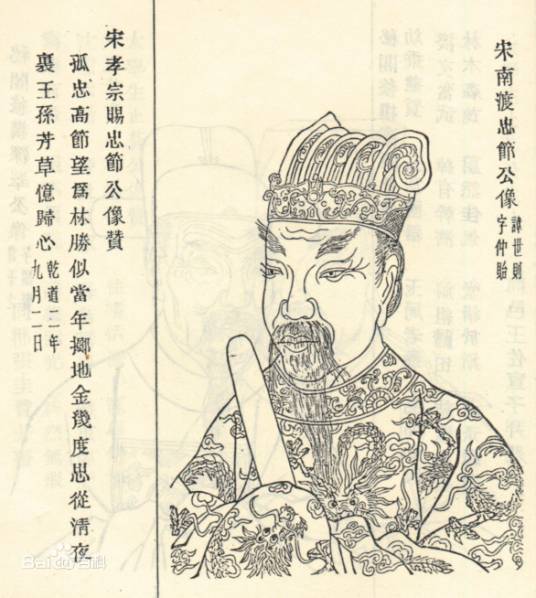 宋南渡忠節公像
諱世則
字仲貽
宋孝宗賜忠節公像贊
孤忠高節望爲林勝似當年擲地金幾度思從清夜
裏王孫芳草憶歸心
乾道二年
九月二日
Baidu百科